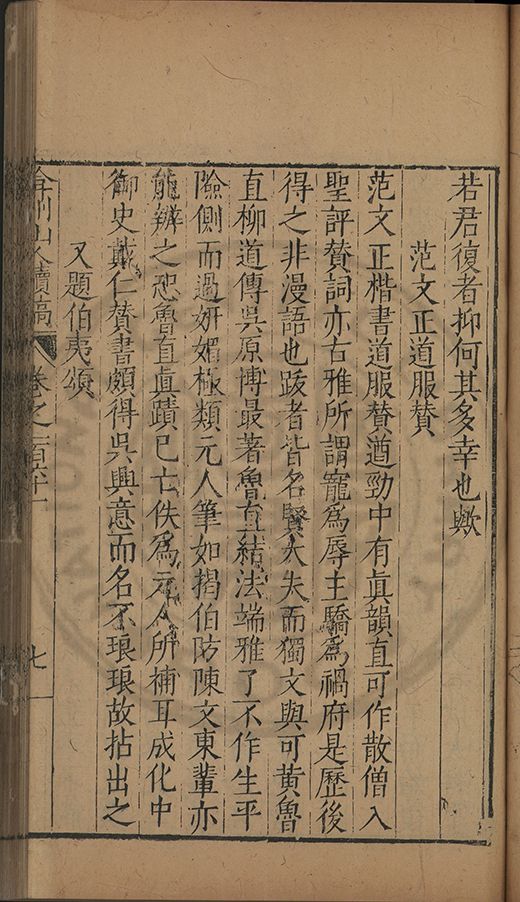 若君復者抑何其多幸也歟
范文正道服賛
范文正楷書道服賛遒勁中有眞韻直可作散僧入
聖評賛詞亦古雅所謂寵爲辱主驕爲禍府是歷後
得之非漫語也跋者皆名賢大夫而獨文與可黄魯
直柳道傳吳原博最著魯直結法端雅了不作生平
險側而過妍媚極類元人筆如揭伯防陳文東輩亦
能辨之恐魯直眞蹟已亡佚爲元人所補耳成化中
御史戴仁賛書頗得吳興意而名不琅琅故拈出之
又題伯夷頌
弇州山人續稿 卷之一百六十一 七